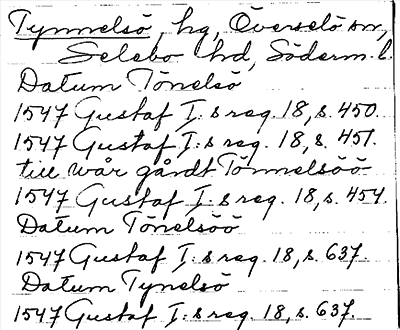 Tynnelsö, hg, Överselö sn,
Selebo hd, Söderm. l.
Datum Tönelsö
1547 Gustaf I:s reg. 18, s. 450.
1547 Gustaf I:s reg. 18, s. 451.
till wår gårdt Tönnelsöö
1547 Gustaf I:s reg. 18, s. 454.
Datum Tönelsöö
1547 Gustaf I:s reg. 18, s. 637.
Datum Tynelsö
1547 Gustaf I:s reg. 18, s. 637.